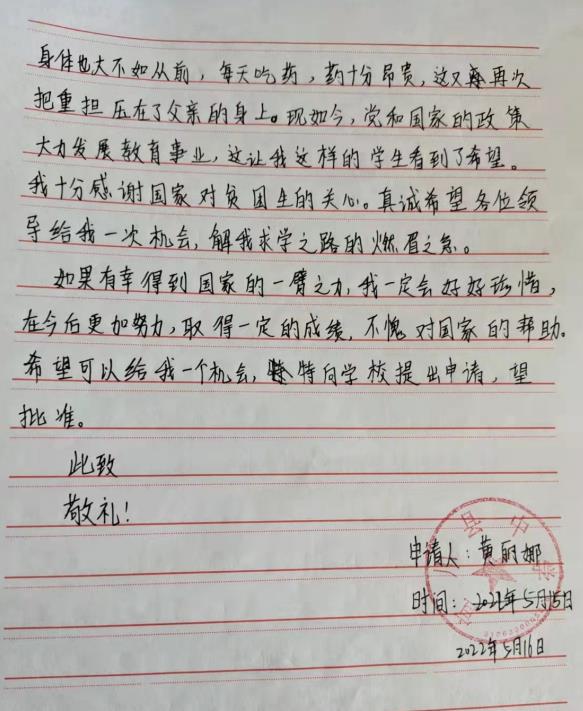 身体也大不如从前，每天吃药，药十分昂贵，这又再次
把重担压在了父亲的身上。现如今，党和国家的政策
大力发展教育事业，这让我这样的学生看到了希望。
我十分感谢国家对贫困生的关心。真诚希望各位领
导给我一次机会，解我求学之路的燃眉之急。
如果有幸得到国家的一臂之力，我一定会好好珍惜，
在今后更加努力，取得一定的成绩，不愧对国家的帮助。
希望可以给我一个机会，特向学校提出申请，望
批准。
此致
敬礼！
县中学
申请人：黄丽娜
时间：2022年5月15日
2022年5月16日